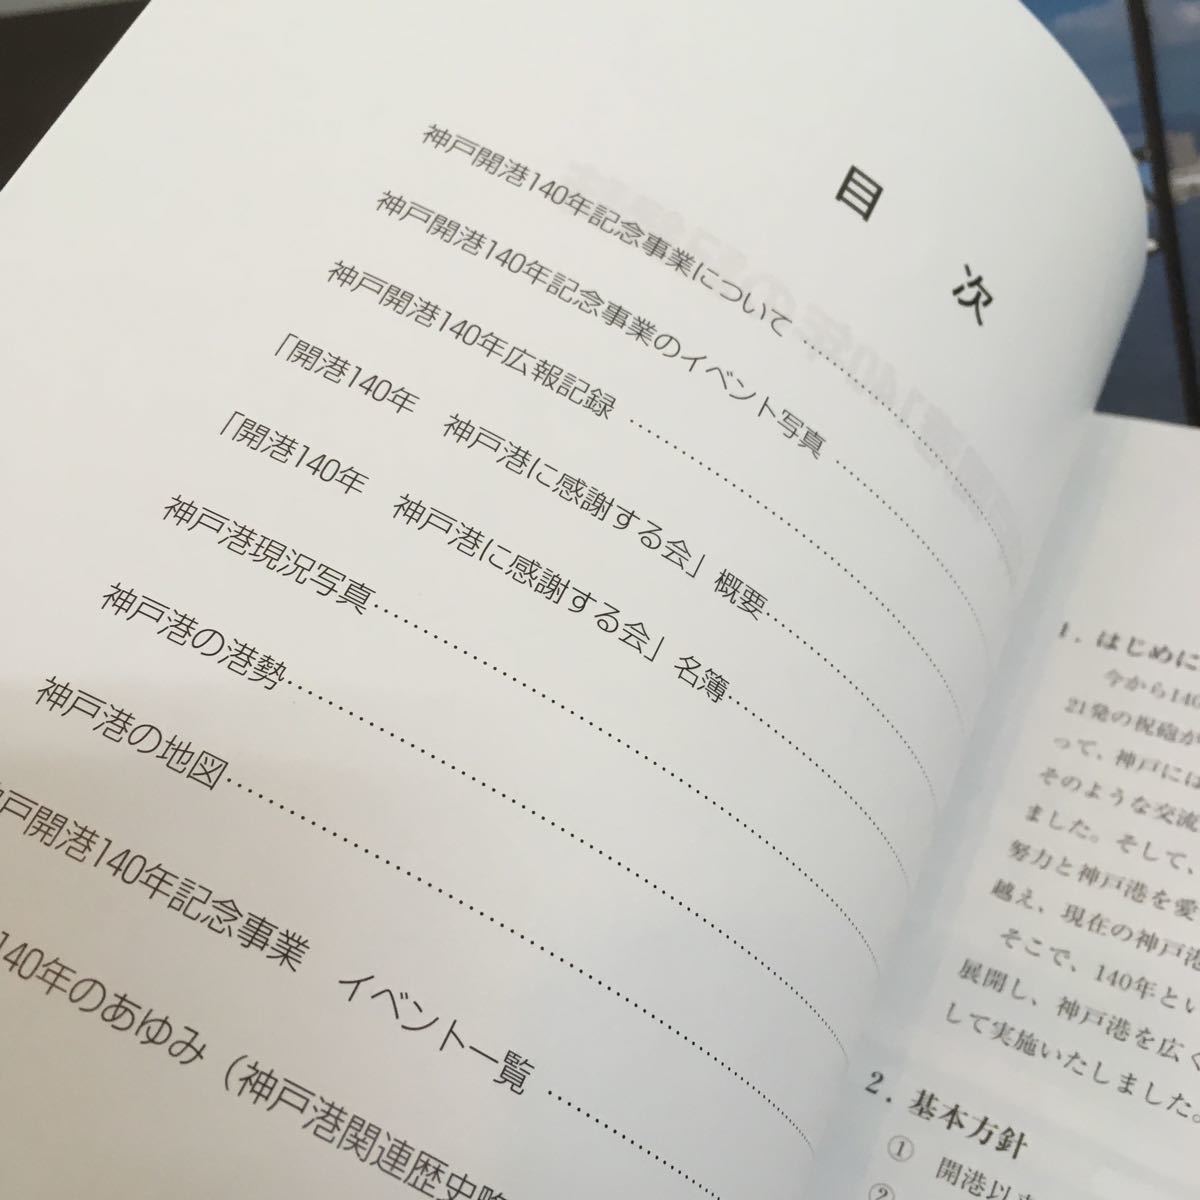 目次
神戸開港140年記念事業について
神戸開港140年記念事業のイベント写真
神戸開港140年広報記録
「開港140年　神戸港に感謝する会」概要
「開港140年　神戸港に感謝する会」名簿
神戸港現況写真
神戸港の港勢
神戸港の地図
神戸開港140年記念事業　イベント一覧
140年のあゆみ（神戸港関連歴史略
1．はじめに
今から140
21発の祝砲が
って、神戸には
そのような交流
ました。そして、
努力と神戸港を愛
越え、現在の神戸港
そこで、140年とい
展開し、神戸港を広く
して実施いたしました。
2．基本方針
① 開港以来
②